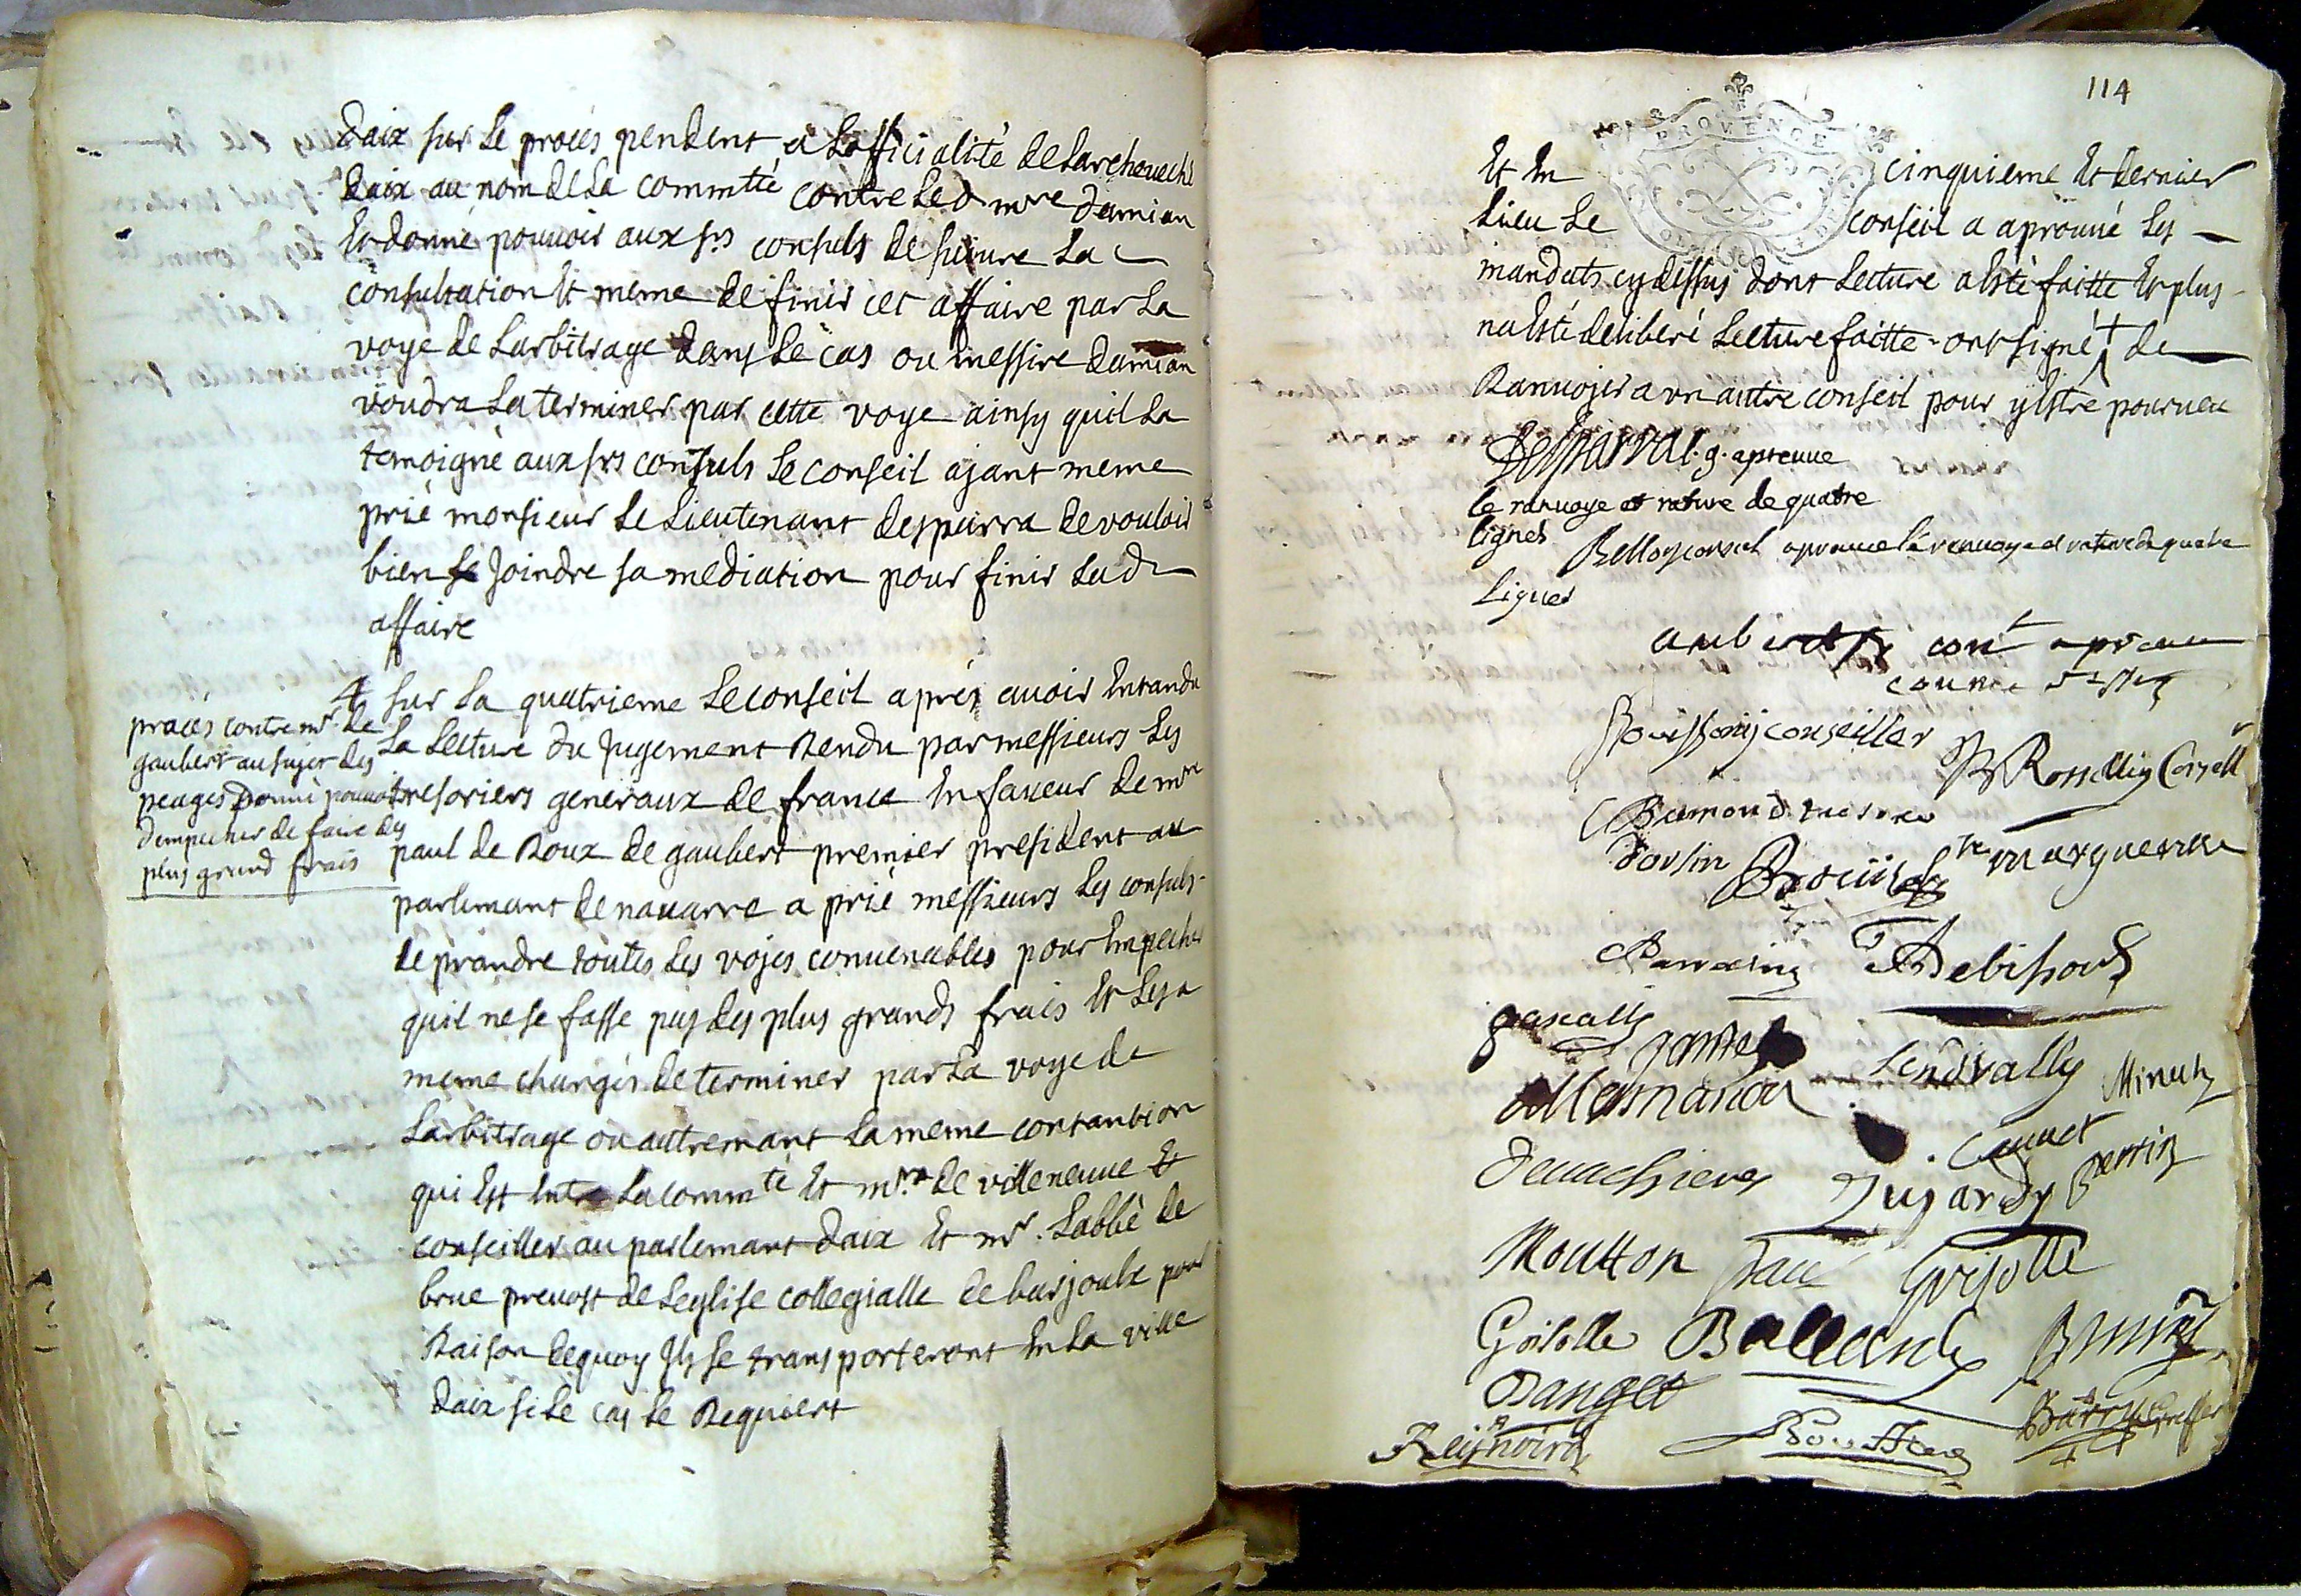 daix sur le procés pendent a Lofficialité de Larcheueché
daix au nom de La commté contre Le d mre damian
Et donné pouuoir aux srs consuls de suiure La
consultation Et meme de finir cet affaire par La
voye de Larbitrage dans Le cas ou messire damian
voudra La terminer par cette voye ainsy quil La
temoigné aux srs consuls Le conseil ajant meme
prié monsieur Le Lieutenant desparra de vouloir
bien Joindre sa mediation pour finir Lad
affaire
4 sur La quatrieme Le conseil aprés auoir Entandu
procés contre mr. de
gaubert au sujet des
peages donné pouuoir
dempecher de faire des
plus grand frais
La Lecture du Jugement Rendu par messieurs Les
tresoriers generaux de france En faueur de mre
paul de Roux de gaubert premier president au
parlemant de nauarre a prié messieurs Les consuls
de prandre toutes Les vojes conuenables pour Empecher
quil ne se fasse pas des plus grands frais Et Les a
meme chargés de terminer par La voye de
Larbitrage ou autremant La meme contantion
qui Est Entre La commté Et mr. de villeneuue Et
conseiller au parlemant daix Et mr. Labbé de
brue preuost de Leglise collegialle de barjoulx pour
Raison dequoy Ils se transporteront En La ville
daix si Le cas Le Requiert
114
PROVENCE
Et En cinquieme Et dernier
Lieu Le conseil a aprouué Les
mandats cy dessus dont Lecture a Esté faitte Et plus
na Esté deliberé Lecture faitte ont signé + de
Ranuojer a un autre conseil pour y Estre pourueu
aprouue
le ranuoye et rature de quatre
lignes
consul aprouue Le renuoye et rature de quatre
Lignes
aubert
Bouissony conseiller
Rossolliy Consell
Bremond tresorer
dorsin
marguerite
pascallis
jantet
allemand
Senequally
Minuty
Cauuet
deuachieres
Jujardy
Perrin
Moutton
pau
Grisolle
Grisolle
Ballardy
Bruny
Danget
Barry Greffier
Reijnoird